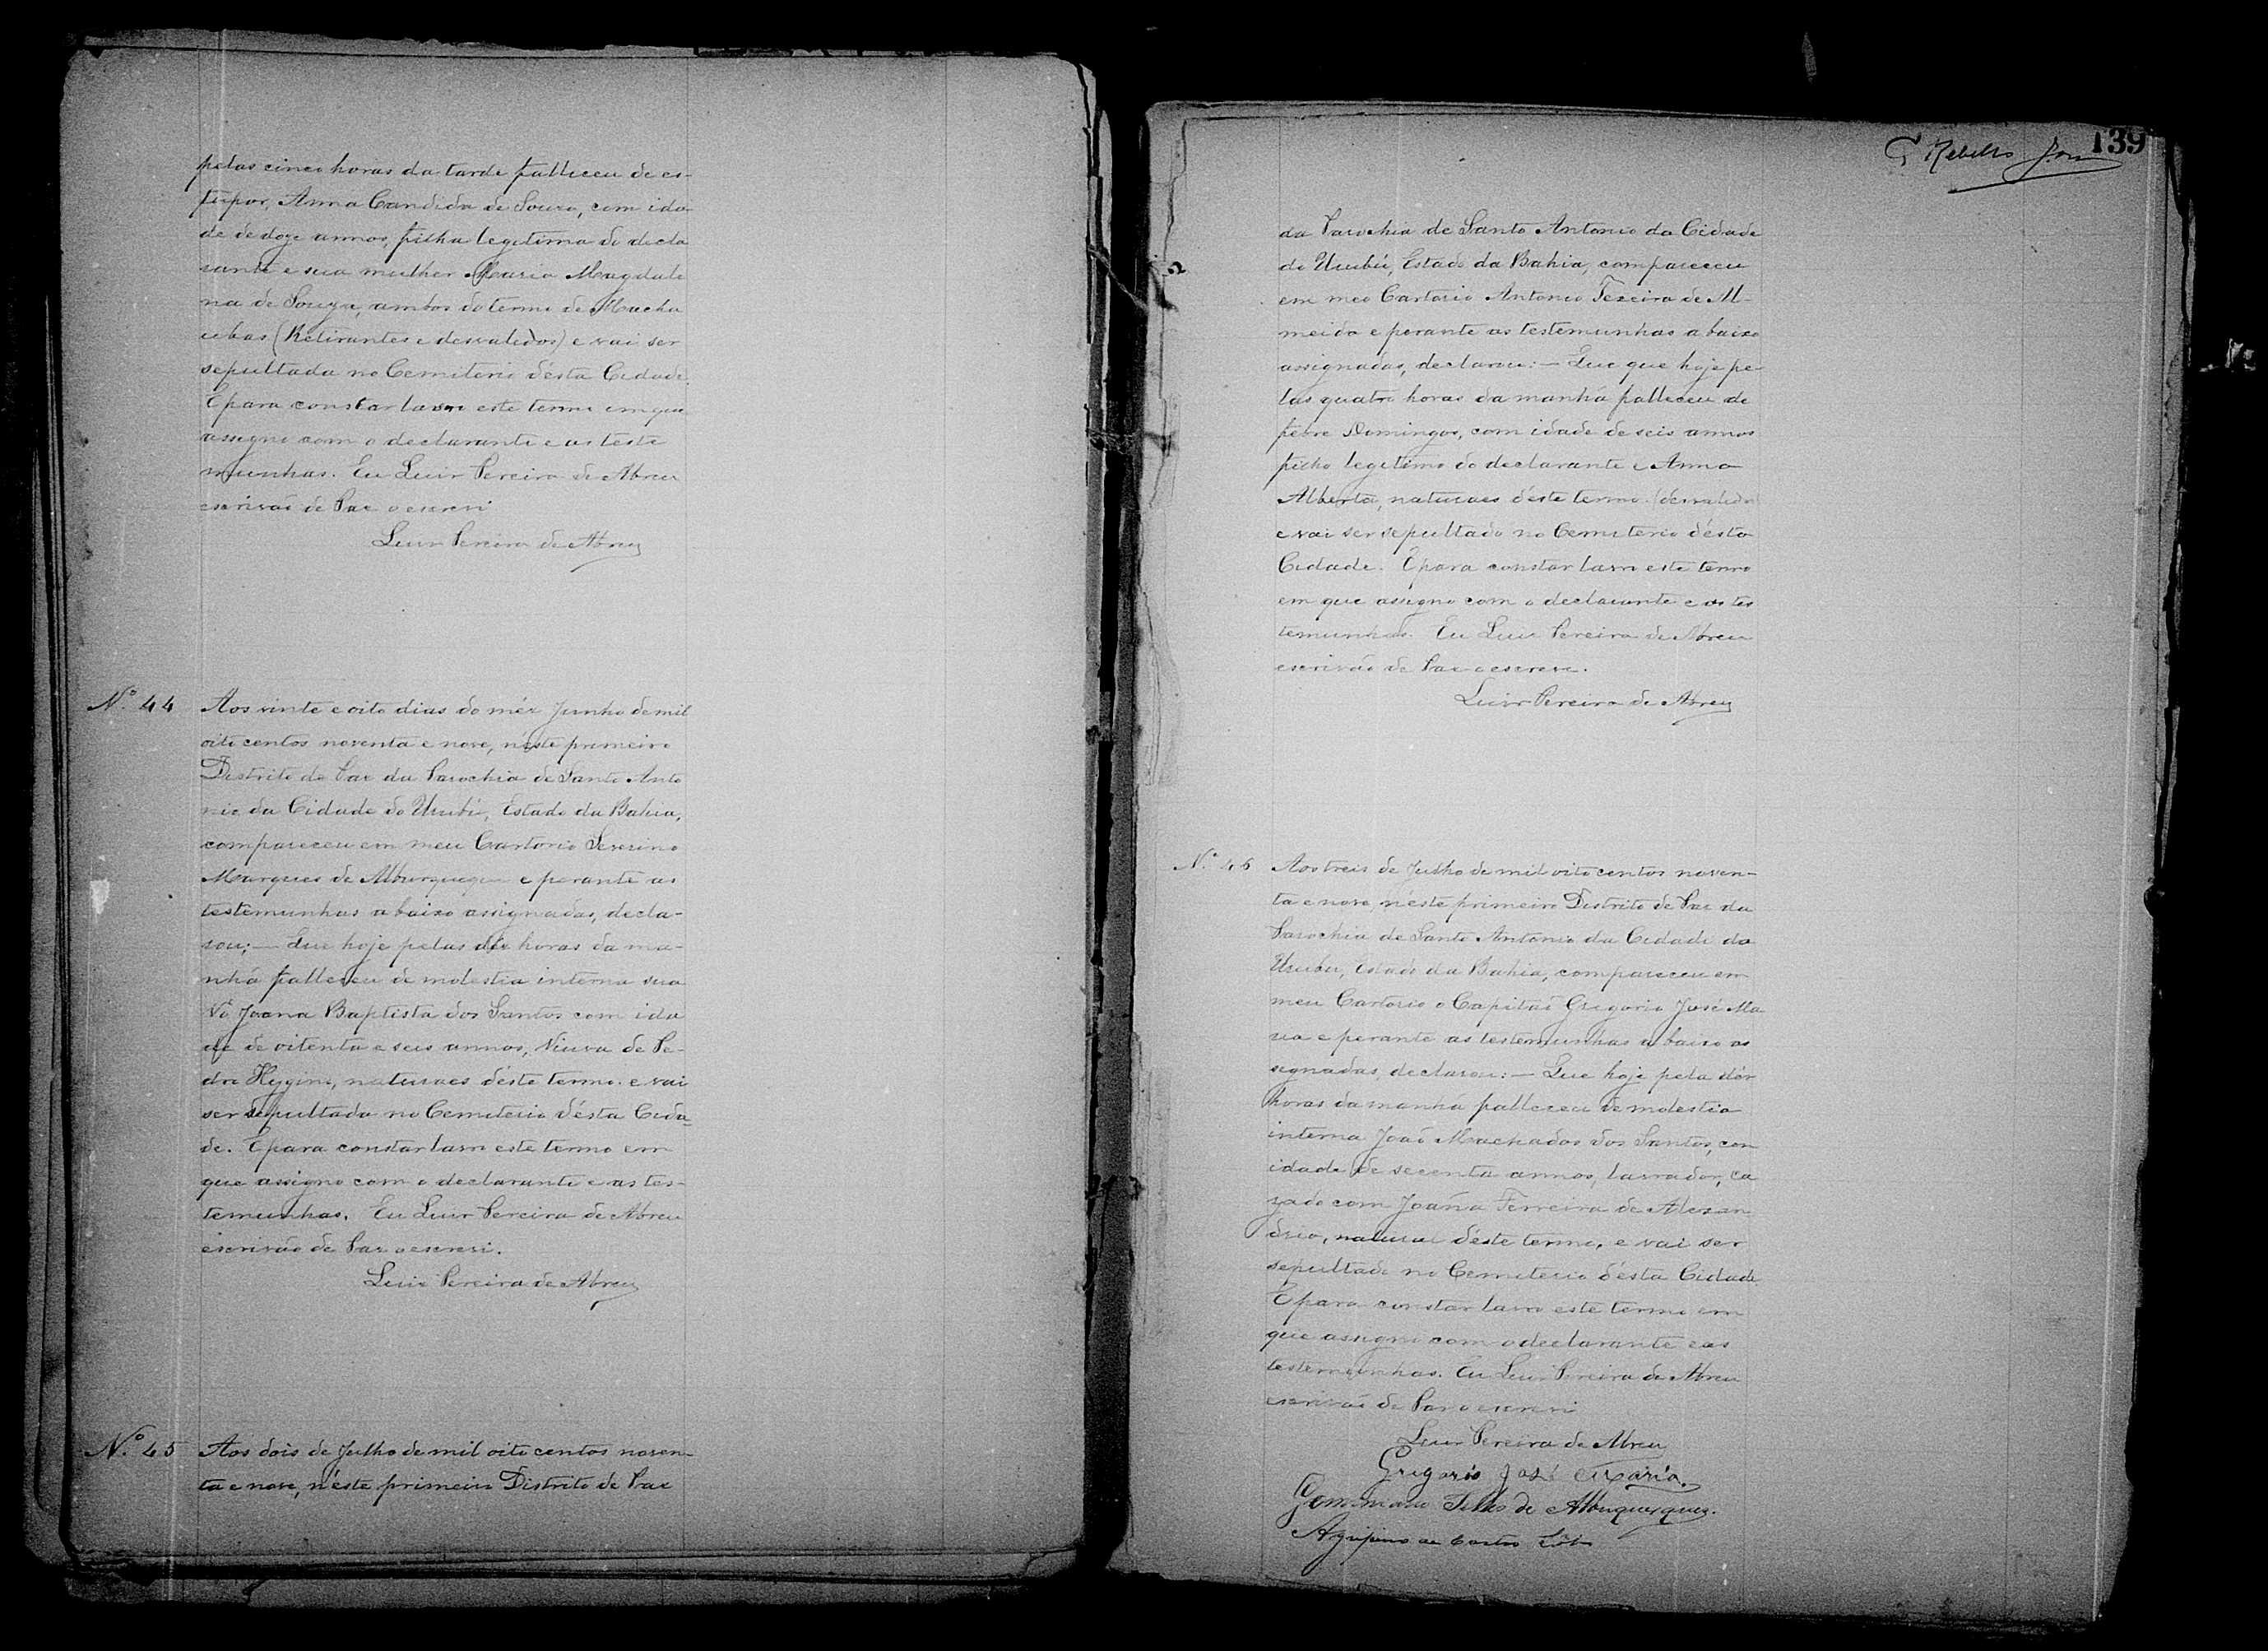 pelas cinco horas da tarde falleceu de es-
tupor, Anna Candida de Souza, com ida
de de doze annos, filha legitima do decla
rante e sua mulher Maria Magdale
na de Souza, ambos do termo de Machu
cubas (Retirantes e desvalidos) e vai ser
sepultada no Cemiterio désta Cidade.
E para constar lavro este termo em que
assigno com o declarante e as teste
munhas. Eu Luis Pereira de Abreu
escrivão de Paz o escrevi
Luis Pereira de Abreu
Nº 44
Aos vinte e oito dias do méz Junho de mil
oito centos noventa e nove, néste primeiro
Distrito de Paz da Parochia de Santo Anto
nio da Cidade do Urubú, Estado da Bahia,
compareceu em meu Cartorio Severino
Marques de Alburqueque e perante as
testemunhas abaixo assignadas, decla-
rou: — Que hoje pelas déz horas da ma-
nhã falleceu de molestia interna sua
Vó Joana Baptista dos Santos com ida
de de oitenta e seis annos, Viuva de Pe-
dro Hygino, naturaes déste termo. e vai
ser sepultada no Cemiterio désta Cida-
de. E para constar lavro este termo em
que assigno com o declarante e as tes-
temunhas. Eu Luis Pereira de Abreu
escrivão de Paz o escrevi.
Luis Pereira de Abreu
Nº 45
Aos dois de Julho de mil oito centos noven-
ta e nove, néste primeiro Distrito de Paz
139
da Parochia de Santo Antonio da Cidade
do Urubú, Estado da Bahia, compareceu
em meo Cartorio Antonio Texeira de Al-
meida e perante as testemunhas abaixo
assignadas, declarou: — Que que hoje pe-
las quatro horas da manhã falleceu de
febre Domingos, com idade de seis annos
filho legitimo do declarante e Anna
Alberta, naturaes déste termo. (desvalido)
e vai ser sepultado no Cemiterio désta
Cidade. E para constar lavro este termo
em que assigno com o declarante e as tes
temunhas. Eu Luis Pereira de Abreu
escrivão de Paz o escrevi.
Luis Pereira de Abreu
Nº 46
Aos treis de Julho de mil oito centos noven-
ta e nove, néste primeiro Distrito de Paz da
Parochia de Santo Antonio da Cidade do
Urubu, Estado da Bahia, compareceu em
meu Cartorio o Capitaõ Gregorio José Ma
ria e perante as testemunhas abaixo as
signadas, declarou: — Que hoje pela déz
horas da manhã falleceu de molestia
interna Joaõ Machados dos Santos, con
idade de secenta annos, lavrador, ca
zado com Joaña Ferreira de Alexan
drio, natural déste termo, e vai ser
sepultado no Cemiterio désta Cidade.
E para constar lavro este termo em
que assigno com o declarante e as
testemunhas. Eu Luis Pereira de Abreu
escrivaõ de Paz o escrevi
Luis Pereira de Abreu
Gregorio José Maria.
Telles de Albuquerque.
Agripino de Castro